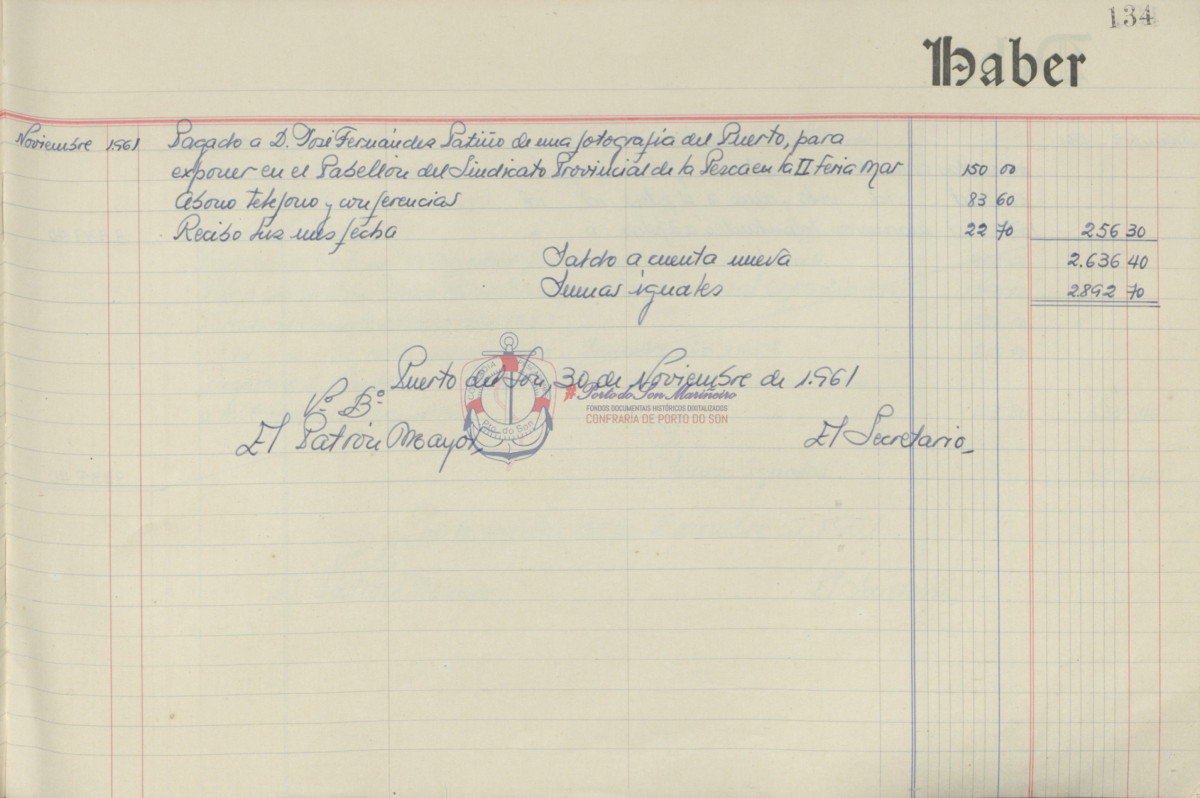 134
Haber
Noviembre 1961 Pagado a D. José Fernández Patiño de una fotografía del Puerto, para
exponer en el Pabellón del Sindicato Provincial de la Pesca en la II Feria Mar 150 00
Abono telefono y conferencias 83 60
Recibo luz mes fecha 22 70 256 30
Saldo a cuenta nueva 2.636 40
Sumas iguales 2892 70
Puerto del Son, 30 de Noviembre de 1.961
Vº Bº
El Patrón Mayor
El Secretario
#Porto do Son Mariñeiro
FONDOS DOCUMENTAIS HISTÓRICOS DIXITALIZADOS
CONFRARÍA DE PORTO DO SON
Pto. do Son